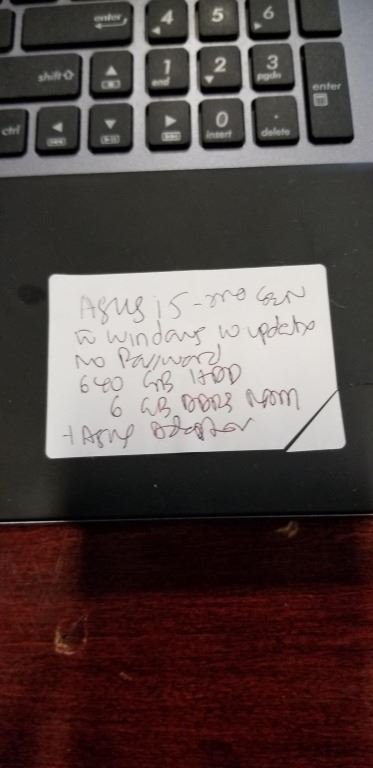 enter
4
5
6
shift
1
end
2
3
pgdn
enter
ctrl
0
insert
.
delete
ASUS i5 - 2nd GEN
W windows 10 update
No Password
640 GB HDD
6 GB DDR3 RAM
+ ASUS Adapter